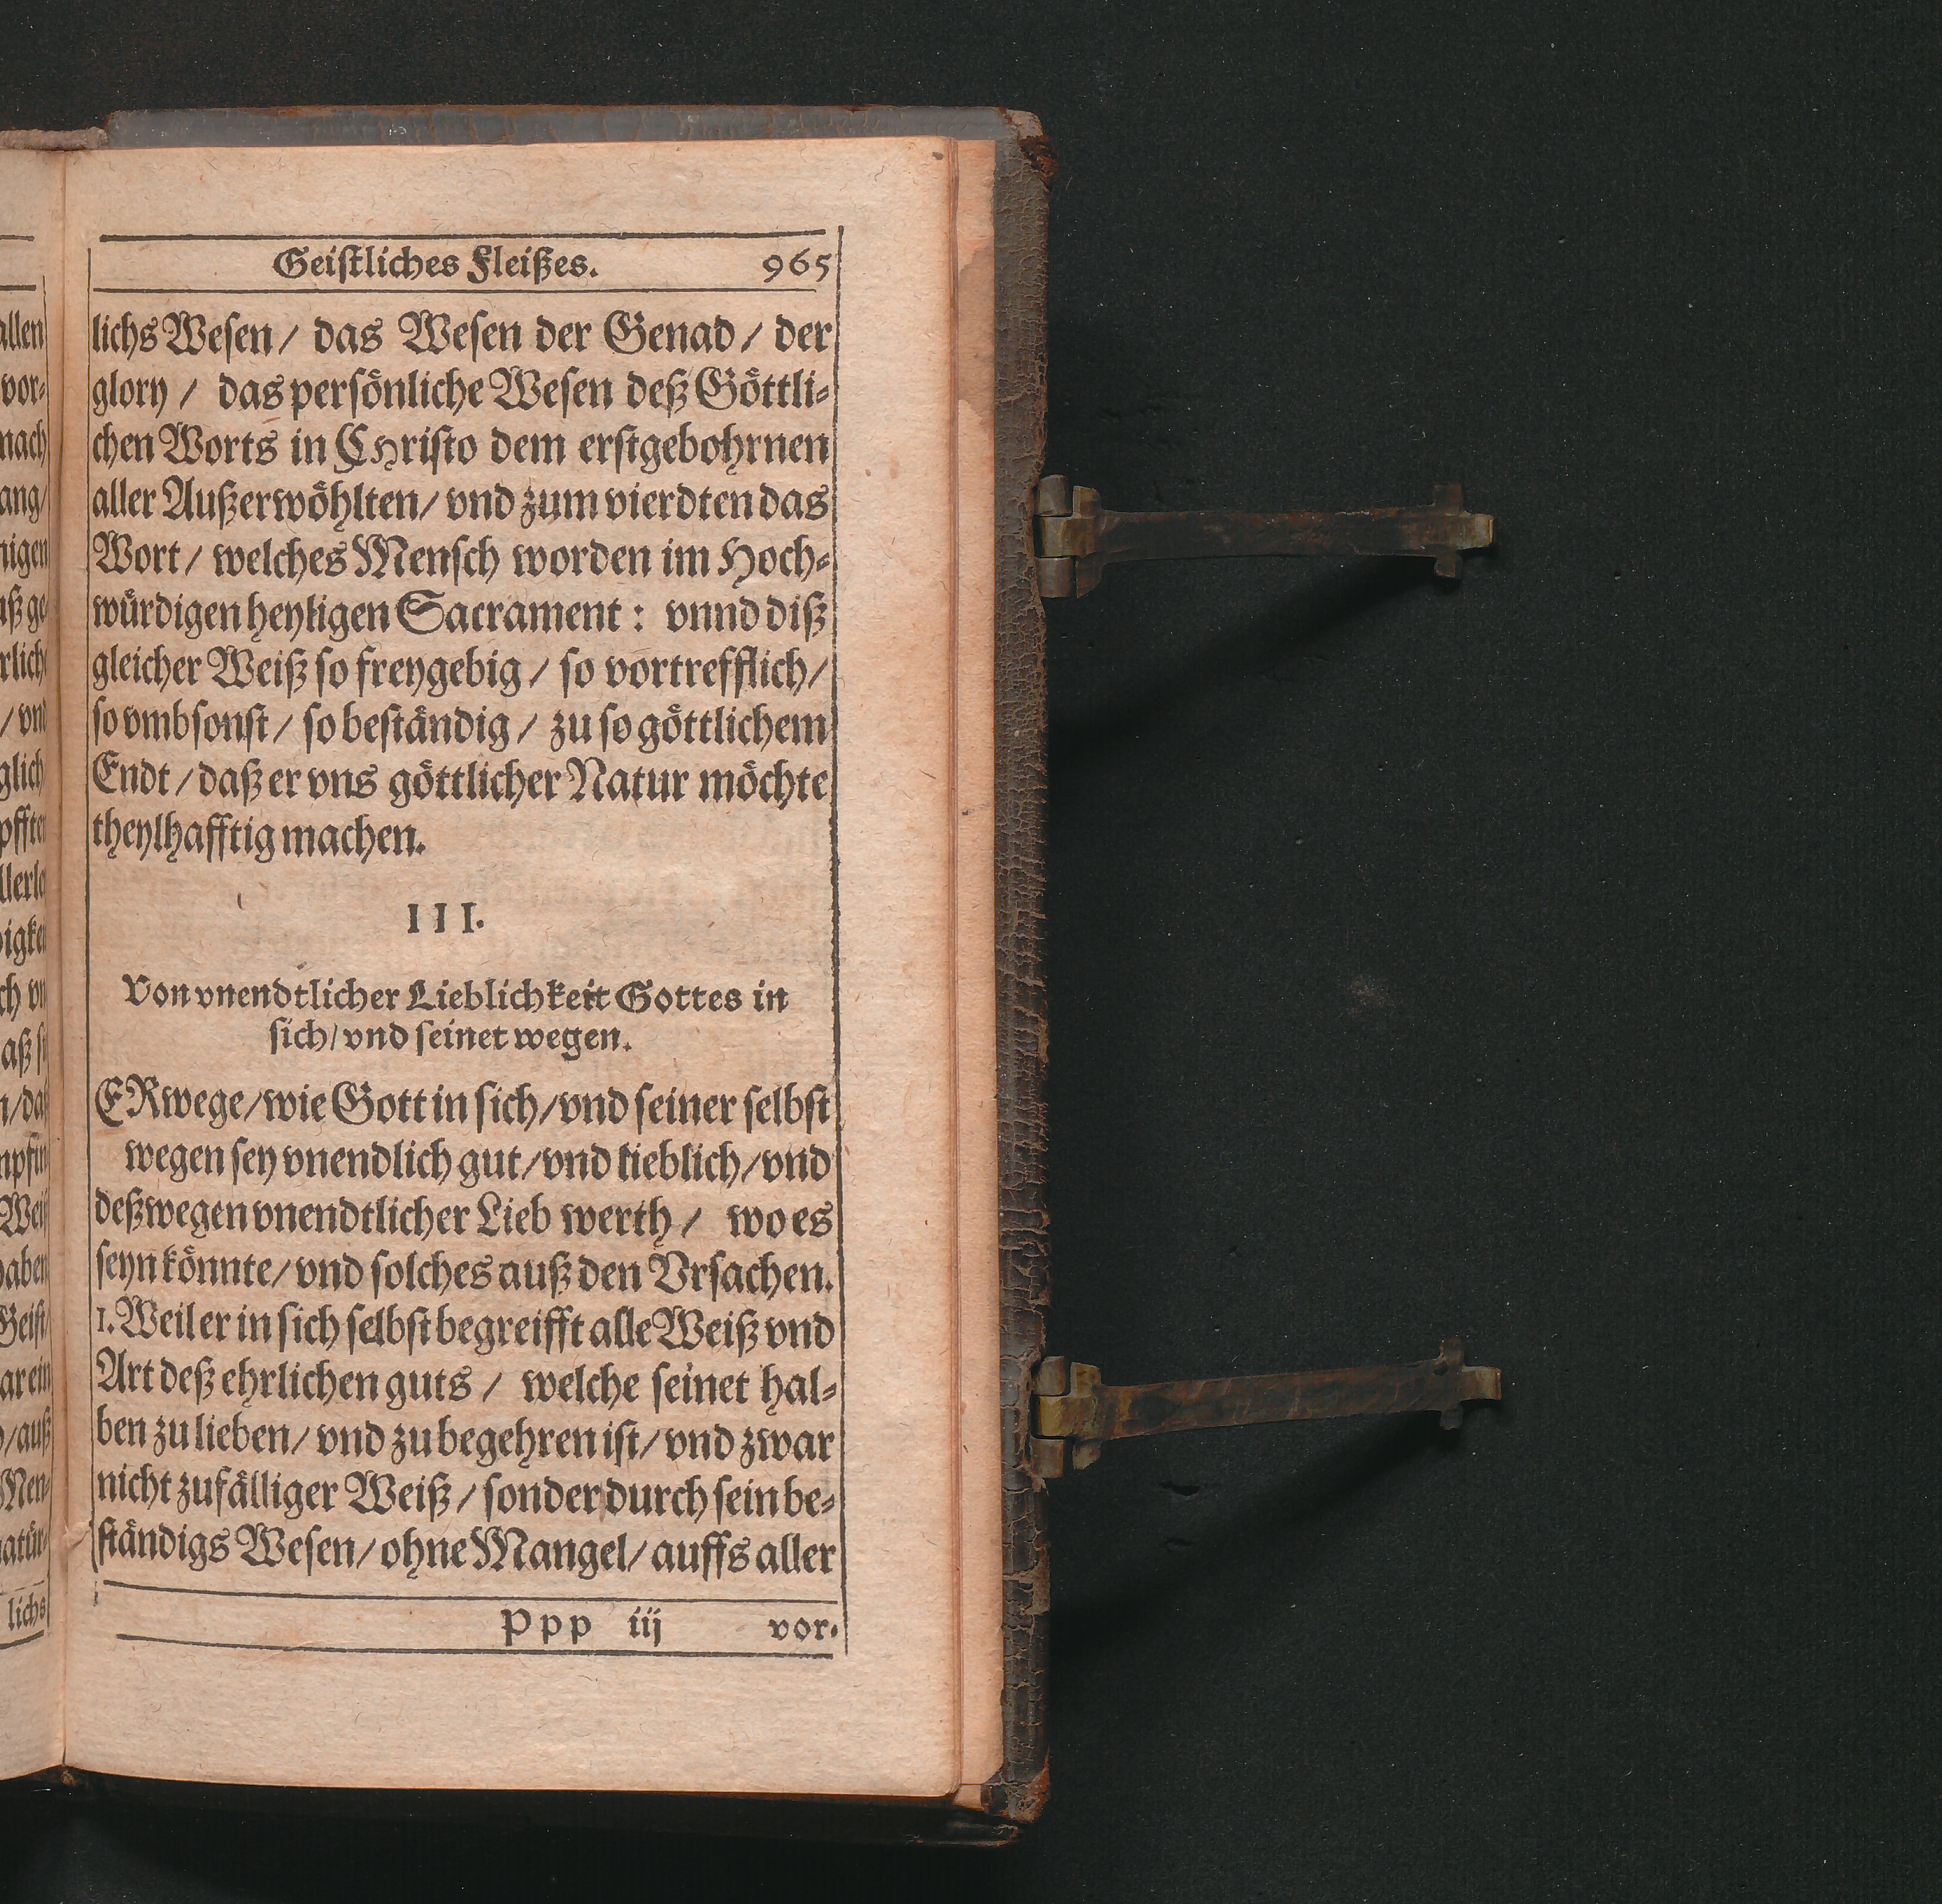 Geiſtliches Fleißes. 965
lichs Weſen / das Weſen der Genad / der
glory / das perſönliche Weſen deß Göttli-
chen Worts in CHriſto dem erſtgebohrnen
aller Außerwöhlten / vnd zum vierdten das
Wort / welches Menſch worden im Hoch-
würdigen heyligen Sacrament : vnnd diß
gleicher Weiß ſo freygebig / ſo vortrefflich /
ſo vmbſonſt / ſo beſtändig / zu ſo göttlichem
Endt / daß er vns göttlicher Natur möchte
theylhafftig machen.
III.
Von vnendtlicher Lieblichkeit Gottes in
ſich / vnd ſeinet wegen.
ERwege / wie Gott in ſich / vnd ſeiner ſelbſt
wegen ſey vnendlich gut / vnd lieblich / vnd
deßwegen vnendtlicher Lieb werth / wo es
ſeyn könnte / vnd ſolches auß den Vrſachen.
1. Weil er in ſich ſelbſt begreifft alle Weiß vnd
Art deß ehrlichen guts / welche ſeinet hal-
ben zu lieben / vnd zu begehren iſt / vnd zwar
nicht zufälliger Weiß / ſonder durch ſein be-
ſtändigs Weſen / ohne Mangel / auffs aller
Ppp iij vor-